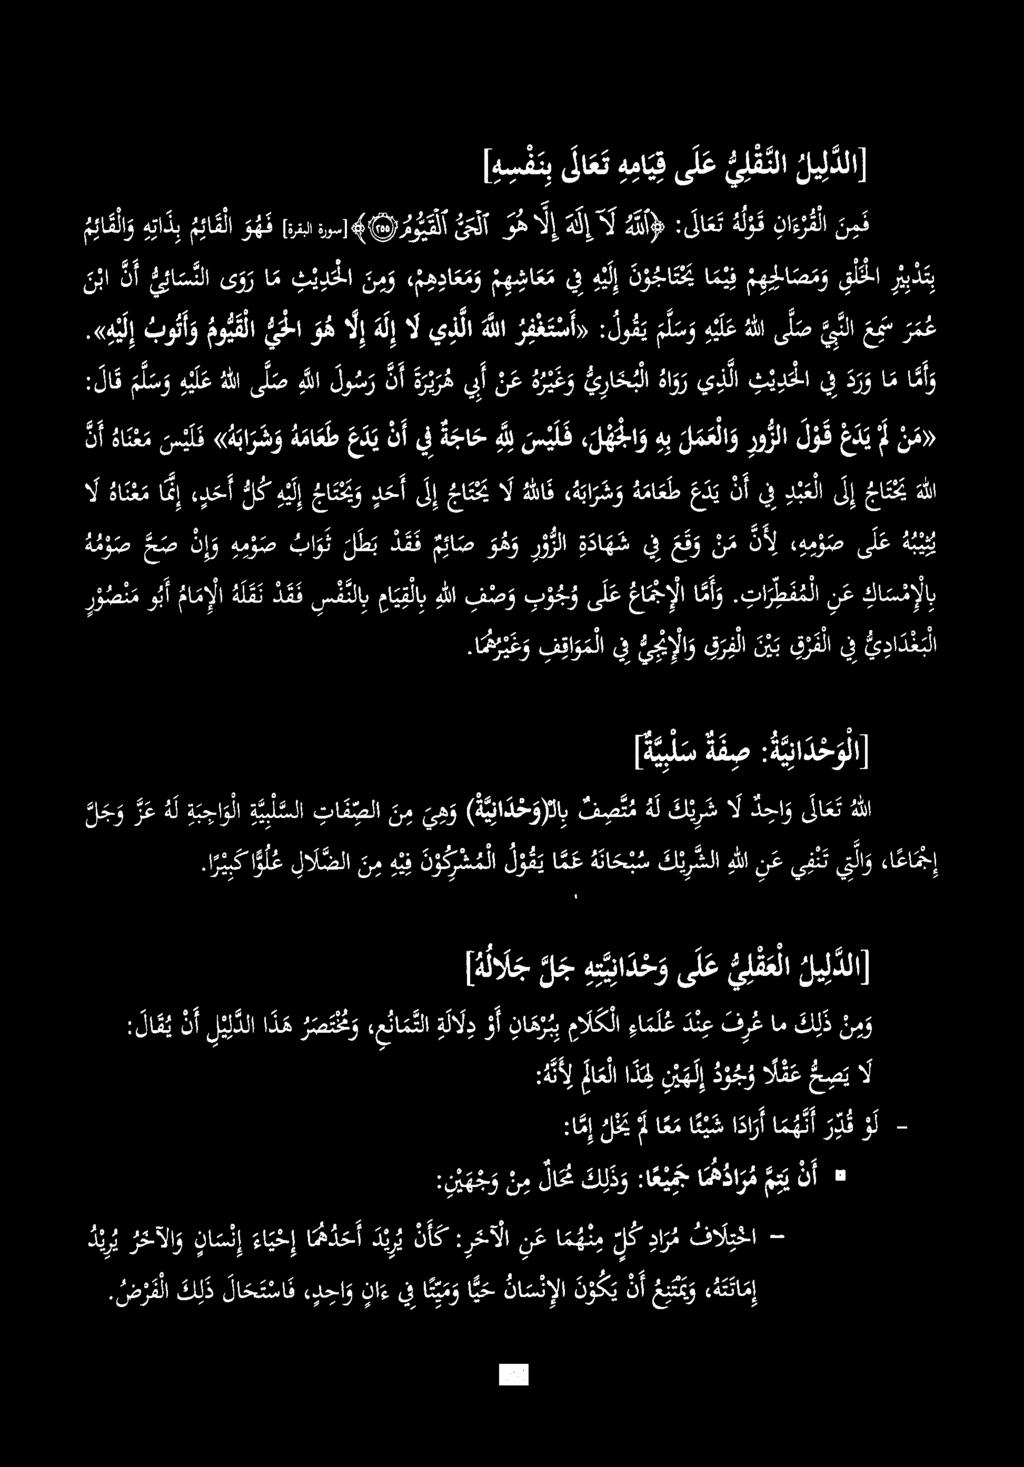 [الدَّلِيلُ النَّقْلِيُّ عَلَى قِيَامِهِ تَعَالَى بِنَفْسِهِ]
فَمِنَ الْقُرْءَانِ قَوْلُهُ تَعَالَى: ﴿ٱللَّهُ لَآ إِلَٰهَ إِلَّا هُوَ ٱلْحَىُّ ٱلْقَيُّومُ ٢٥٥﴾ [سورة البقرة] فَهُوَ الْقَائِمُ بِذَاتِهِ وَالْقَائِمُ
بِتَدْبِيْرِ الْخَلْقِ وَمَصَالِحِهِمْ فِيْمَا يَحْتَاجُوْنَ إِلَيْهِ فِي مَعَاشِهِمْ وَمَعَادِهِمْ، وَمِنَ الْحَدِيْثِ مَا رَوَى النَّسَائِيُّ أَنَّ ابْنَ
عُمَرَ سَمِعَ النَّبِيَّ صَلَّى اللهُ عَلَيْهِ وَسَلَّمَ يَقُولُ: «أَسْتَغْفِرُ اللهَ الَّذِي لَا إِلَهَ إِلَّا هُوَ الْحَيُّ الْقَيُّومُ وَأَتُوبُ إِلَيْهِ».
وَأَمَّا مَا وَرَدَ فِي الْحَدِيْثِ الَّذِي رَوَاهُ الْبُخَارِيُّ وَغَيْرُهُ عَنْ أَبِي هُرَيْرَةَ أَنَّ رَسُوْلَ اللهِ صَلَّى اللهُ عَلَيْهِ وَسَلَّمَ قَالَ:
«مَنْ لَمْ يَدَعْ قَوْلَ الزُّورِ وَالْعَمَلَ بِهِ وَالْجَهْلَ، فَلَيْسَ لِلَّهِ حَاجَةٌ فِي أَنْ يَدَعَ طَعَامَهُ وَشَرَابَهُ» فَلَيْسَ مَعْنَاهُ أَنَّ
اللهَ يَحْتَاجُ إِلَى الْعَبْدِ فِي أَنْ يَدَعَ طَعَامَهُ وَشَرَابَهُ، فَاللهُ لَا يَحْتَاجُ إِلَى أَحَدٍ وَيَحْتَاجُ إِلَيْهِ كُلُّ أَحَدٍ، إِنَّمَا مَعْنَاهُ لَا
يُثِيْبُهُ عَلَى صَوْمِهِ، لِأَنَّ مَنْ وَقَعَ فِي شَهَادَةِ الزُّوْرِ وَهُوَ صَائِمٌ فَقَدْ بَطَلَ ثَوَابُ صَوْمِهِ وَإِنْ صَحَّ صَوْمُهُ
بِالْإِمْسَاكِ عَنِ الْمُفَطِّرَاتِ. وَأَمَّا الْإِجْمَاعُ عَلَى وُجُوْبِ وَصْفِ اللهِ بِالْقِيَامِ بِالنَّفْسِ فَقَدْ نَقَلَهُ الْإِمَامُ أَبُو مَنْصُوْرٍ
الْبَغْدَادِيُّ فِي الْفَرْقِ بَيْنَ الْفِرَقِ وَالْإِيْجِيُّ فِي الْمَوَاقِفِ وَغَيْرُهُمَا.
[الْوَحْدَانِيَّةُ: صِفَةٌ سَلْبِيَّةٌ]
اللهُ تَعَالَى وَاحِدٌ لَا شَرِيْكَ لَهُ مُتَّصِفٌ بِالـ(وَحْدَانِيَّةِ) وَهِيَ مِنَ الصِّفَاتِ السَّلْبِيَّةِ الْوَاجِبَةِ لَهُ عَزَّ وَجَلَّ
إِجْمَاعًا، وَالَّتِي تَنْفِي عَنِ اللهِ الشَّرِيْكَ سُبْحَانَهُ عَمَّا يَقُوْلُ الْمُشْرِكُوْنَ فِيْهِ مِنَ الضَّلَالِ عُلُوًّا كَبِيْرًا.
[الدَّلِيلُ الْعَقْلِيُّ عَلَى وَحْدَانِيَّتِهِ جَلَّ جَلَالُهُ]
وَمِنْ ذَلِكَ ما عُرِفَ عِنْدَ عُلَمَاءِ الْكَلَامِ بِبُرْهَانِ أَوْ دِلَالَةِ التَّمَانُعِ، وَمُخْتَصَرُ هَذَا الدَّلِيْلِ أَنْ يُقَالَ:
لَا يَصِحُّ عَقْلًا وُجُوْدُ إِلَهَيْنِ لِهَذَا الْعَالَمِ لِأَنَّهُ:
- لَوْ قُدِّرَ أَنَّهُمَا أَرَادَا شَيْئًا مَعًا لَمْ يَخْلُ إِمَّا:
▪ أَنْ يَتِمَّ مُرَادُهُمَا جَمِيْعًا: وَذَلِكَ مُحَالٌ مِنْ وَجْهَيْنِ:
- اخْتِلَافُ مُرَادِ كُلٍّ مِنْهُمَا عَنِ الْآخَرِ: كَأَنْ يُرِيْدَ أَحَدُهُمَا إِحْيَاءَ إِنْسَانٍ وَالآخَرُ يُرِيْدُ
إِمَاتَتَهُ، وَيَمْتَنِعُ أَنْ يَكُوْنَ الإِنْسَانُ حَيًّا وَمَيِّتًا فِي ءَانٍ وَاحِدٍ، فَاسْتَحَالَ ذَلِكَ الْفَرْضُ.